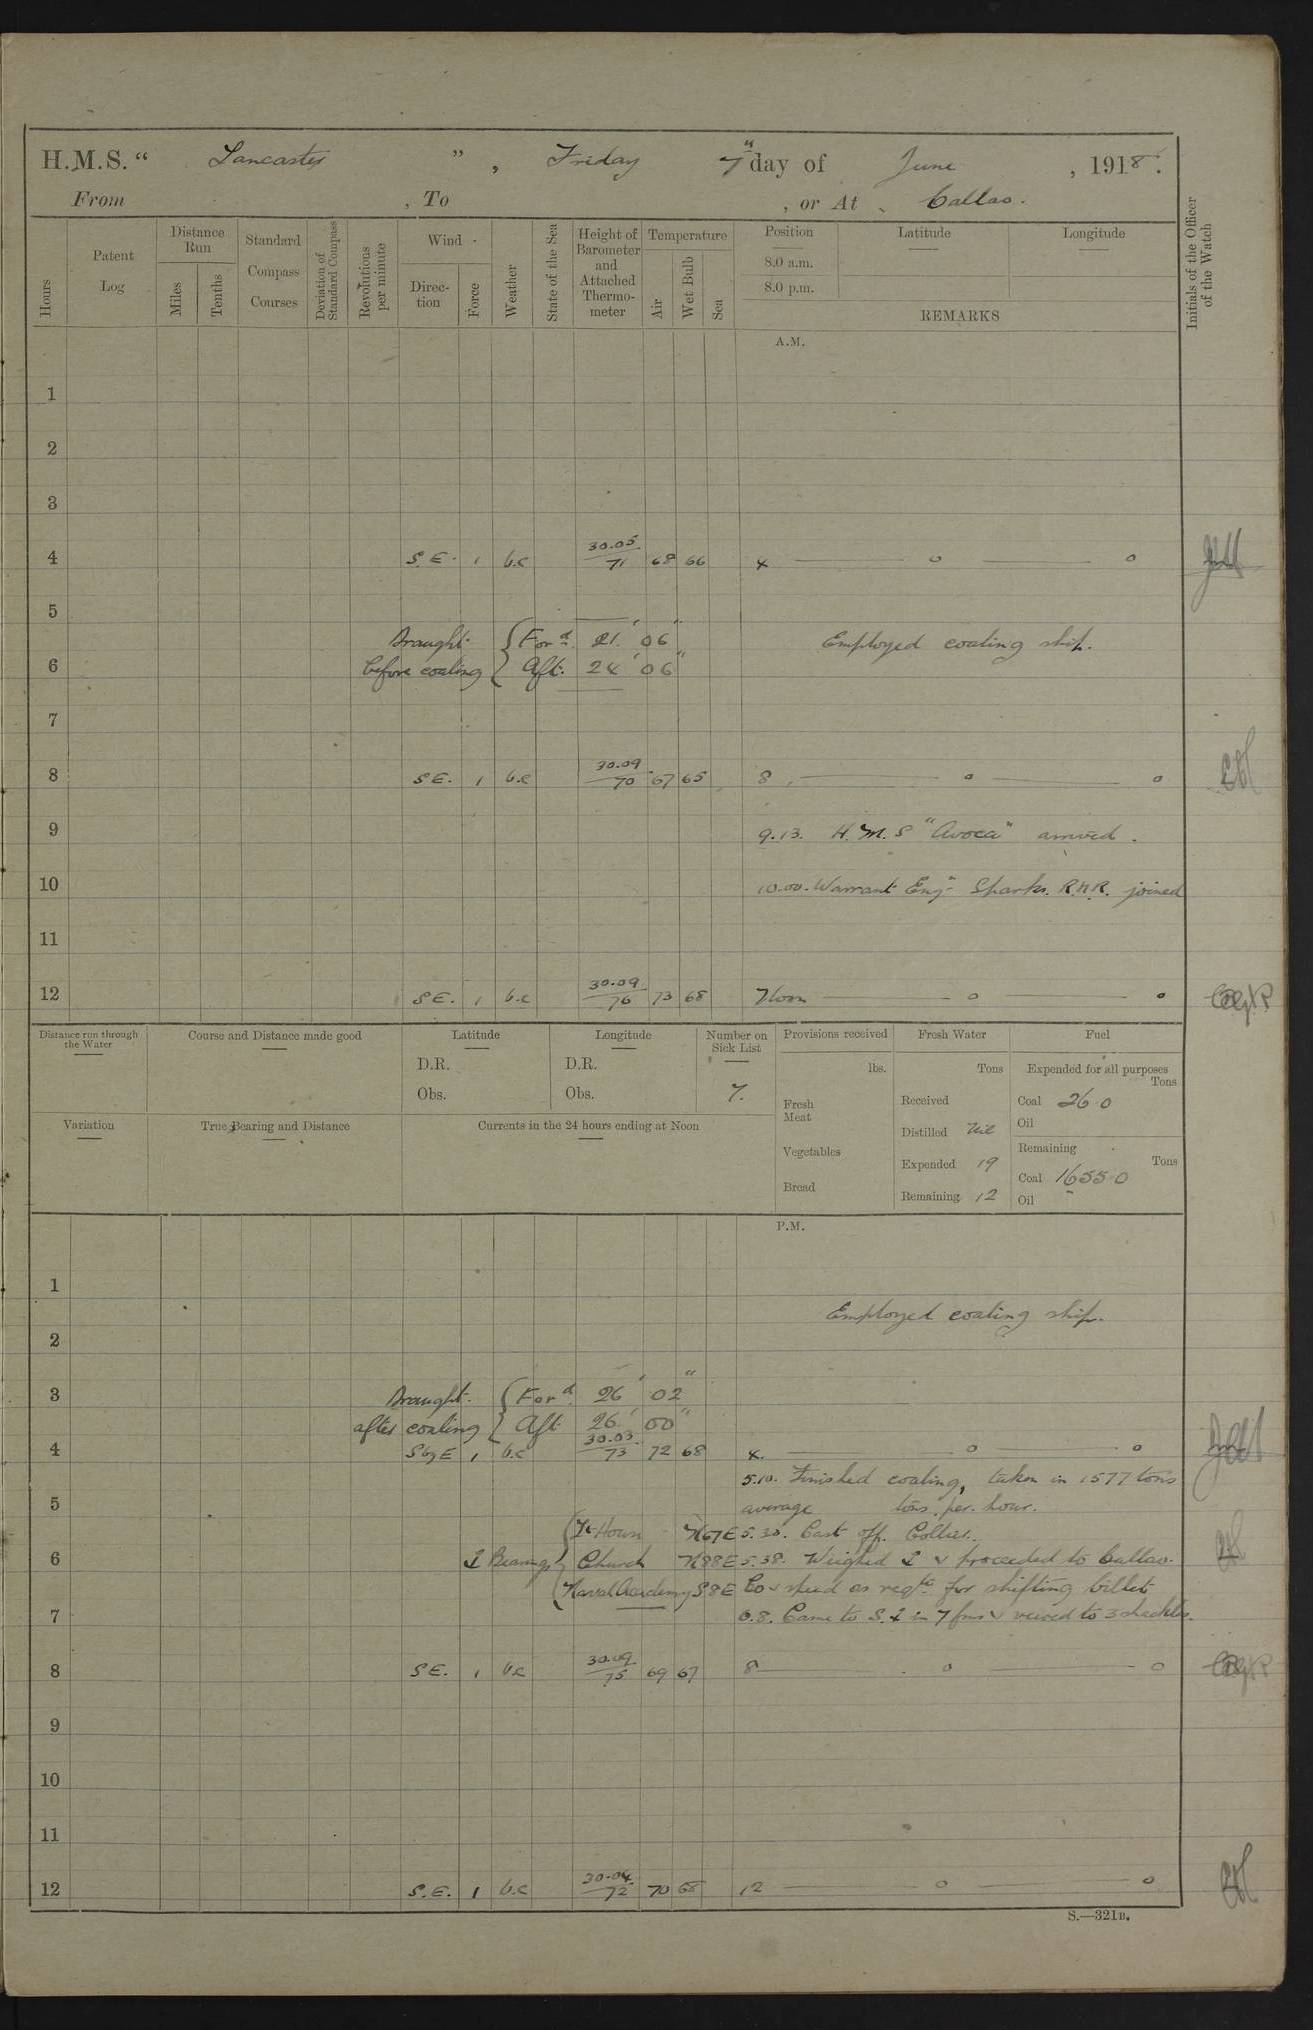 H.M.S. “ Lancaster ” , Friday 7th day of June , 1918.
From , To , or At Callao.
Hours
Patent Log
Distance Run
Miles
Tenths
Standard Compass Courses
Deviation of Standard Compass
Revolutions per minute
Wind
Direction
Force
Weather
State of the Sea
Height of Barometer and Attached Thermometer
Temperature
Air
Wet Bulb
Sea
Position
8.0 a.m.
8.0 p.m.
Latitude
Longitude
REMARKS
Initials of the Officer of the Watch
A.M.
1
2
3
4 S.E. 1 b.c 30.05 71 68 66 4 — o — o
5
Draught { Ford 21' 06" Employed coaling ship.
6 before coaling { Aft. 24' 06"
7
8 S.E. 1 b.c 30.09 70 67 65 8 — o — o
9 9.13. H.M.S "Avoca" arrived.
10 10.00. Warrant Engr Sharks. R.N.R. joined
11
12 S.E. 1 b.c 30.09 76 73 68 Noon — o — o
Distance run through the Water
Course and Distance made good
Latitude
D.R.
Obs.
Longitude
D.R.
Obs.
Number on Sick List
7.
Provisions received
lbs.
Fresh Meat
Vegetables
Bread
Fresh Water
Tons
Received
Distilled Nil
Expended 19
Remaining 12
Fuel
Expended for all purposes
Tons
Coal 26.0
Oil
Remaining
Tons
Coal 1655.0
Oil
Variation
True Bearing and Distance
Currents in the 24 hours ending at Noon
P.M.
1
Employed coaling ship.
2
3 Draught. { Ford 26' 02"
after coaling { Aft 26' 00"
4 S by E 1 b.c 30.03 73 72 68 4. — o — o
5.10. Finished coaling, taken in 1577 tons
5 average tons per hour.
N67E 5.30. Cast off Collier.
6 Bearings Church N88E 5.38. Weighed & proceeded to Callao.
Naval Academy S8E Co & speed as reqte for shifting billet
7 6.8. Came to S. in 7 fms & veered to 3 shackles.
8 S.E. 1 b.c 30.09 75 69 67 8 — o — o
9
10
11
12 S.E. 1 b.c 30.04 72 70 68 12 — o — o
S.—321B.